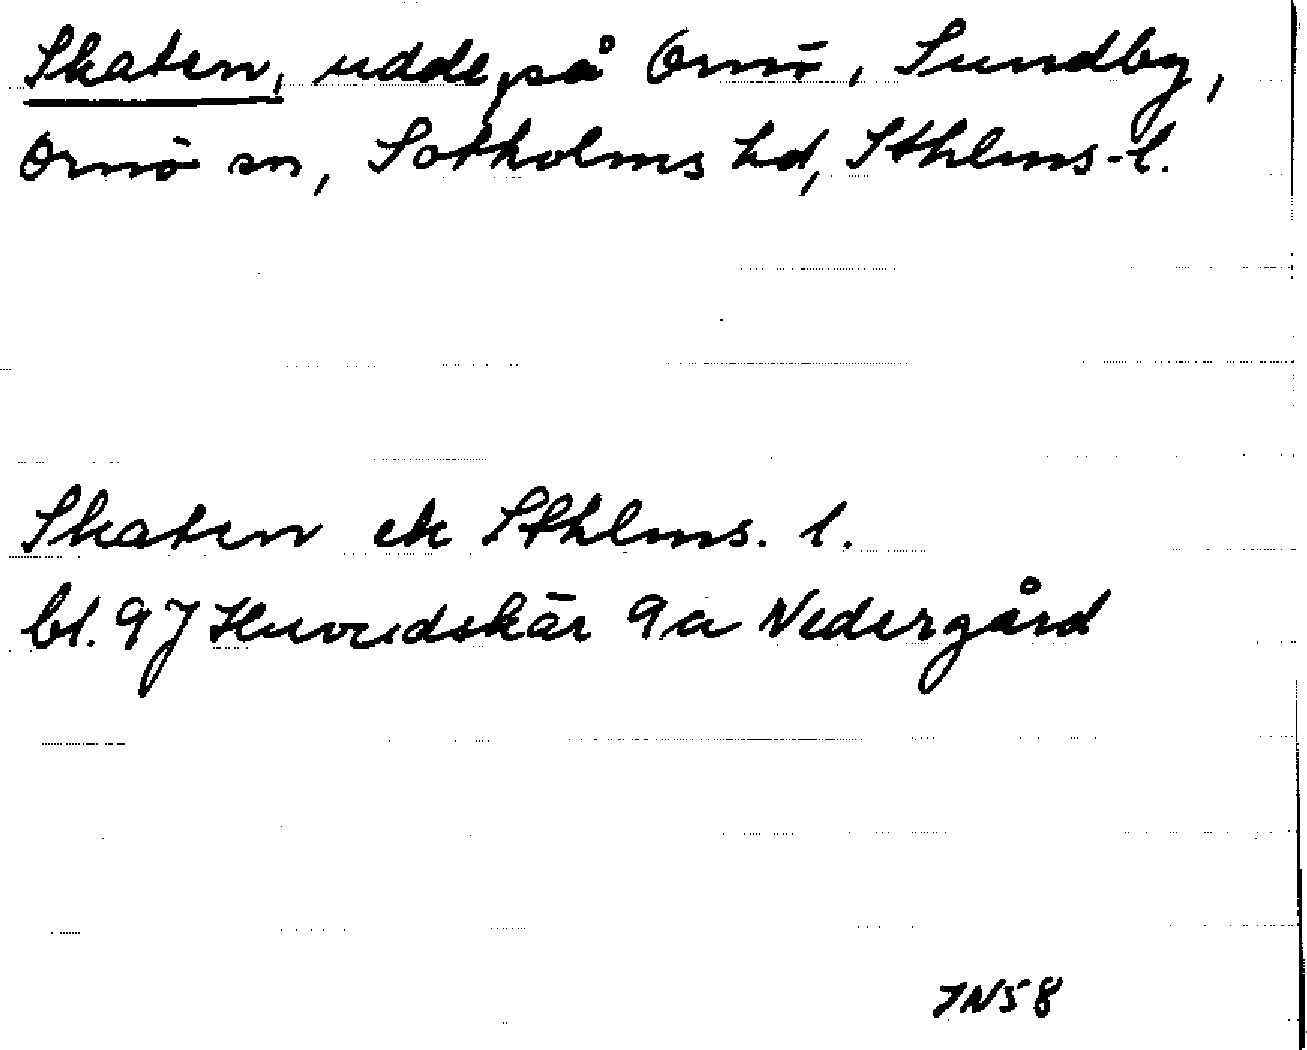 Skaten, udde på Ornö, Sundby,
Ornö sn, Sotholms hd, Sthlms-l.
Skaten ek Sthlms. l.
bl. 97 Huvudskär 9a Nedergård
JN58